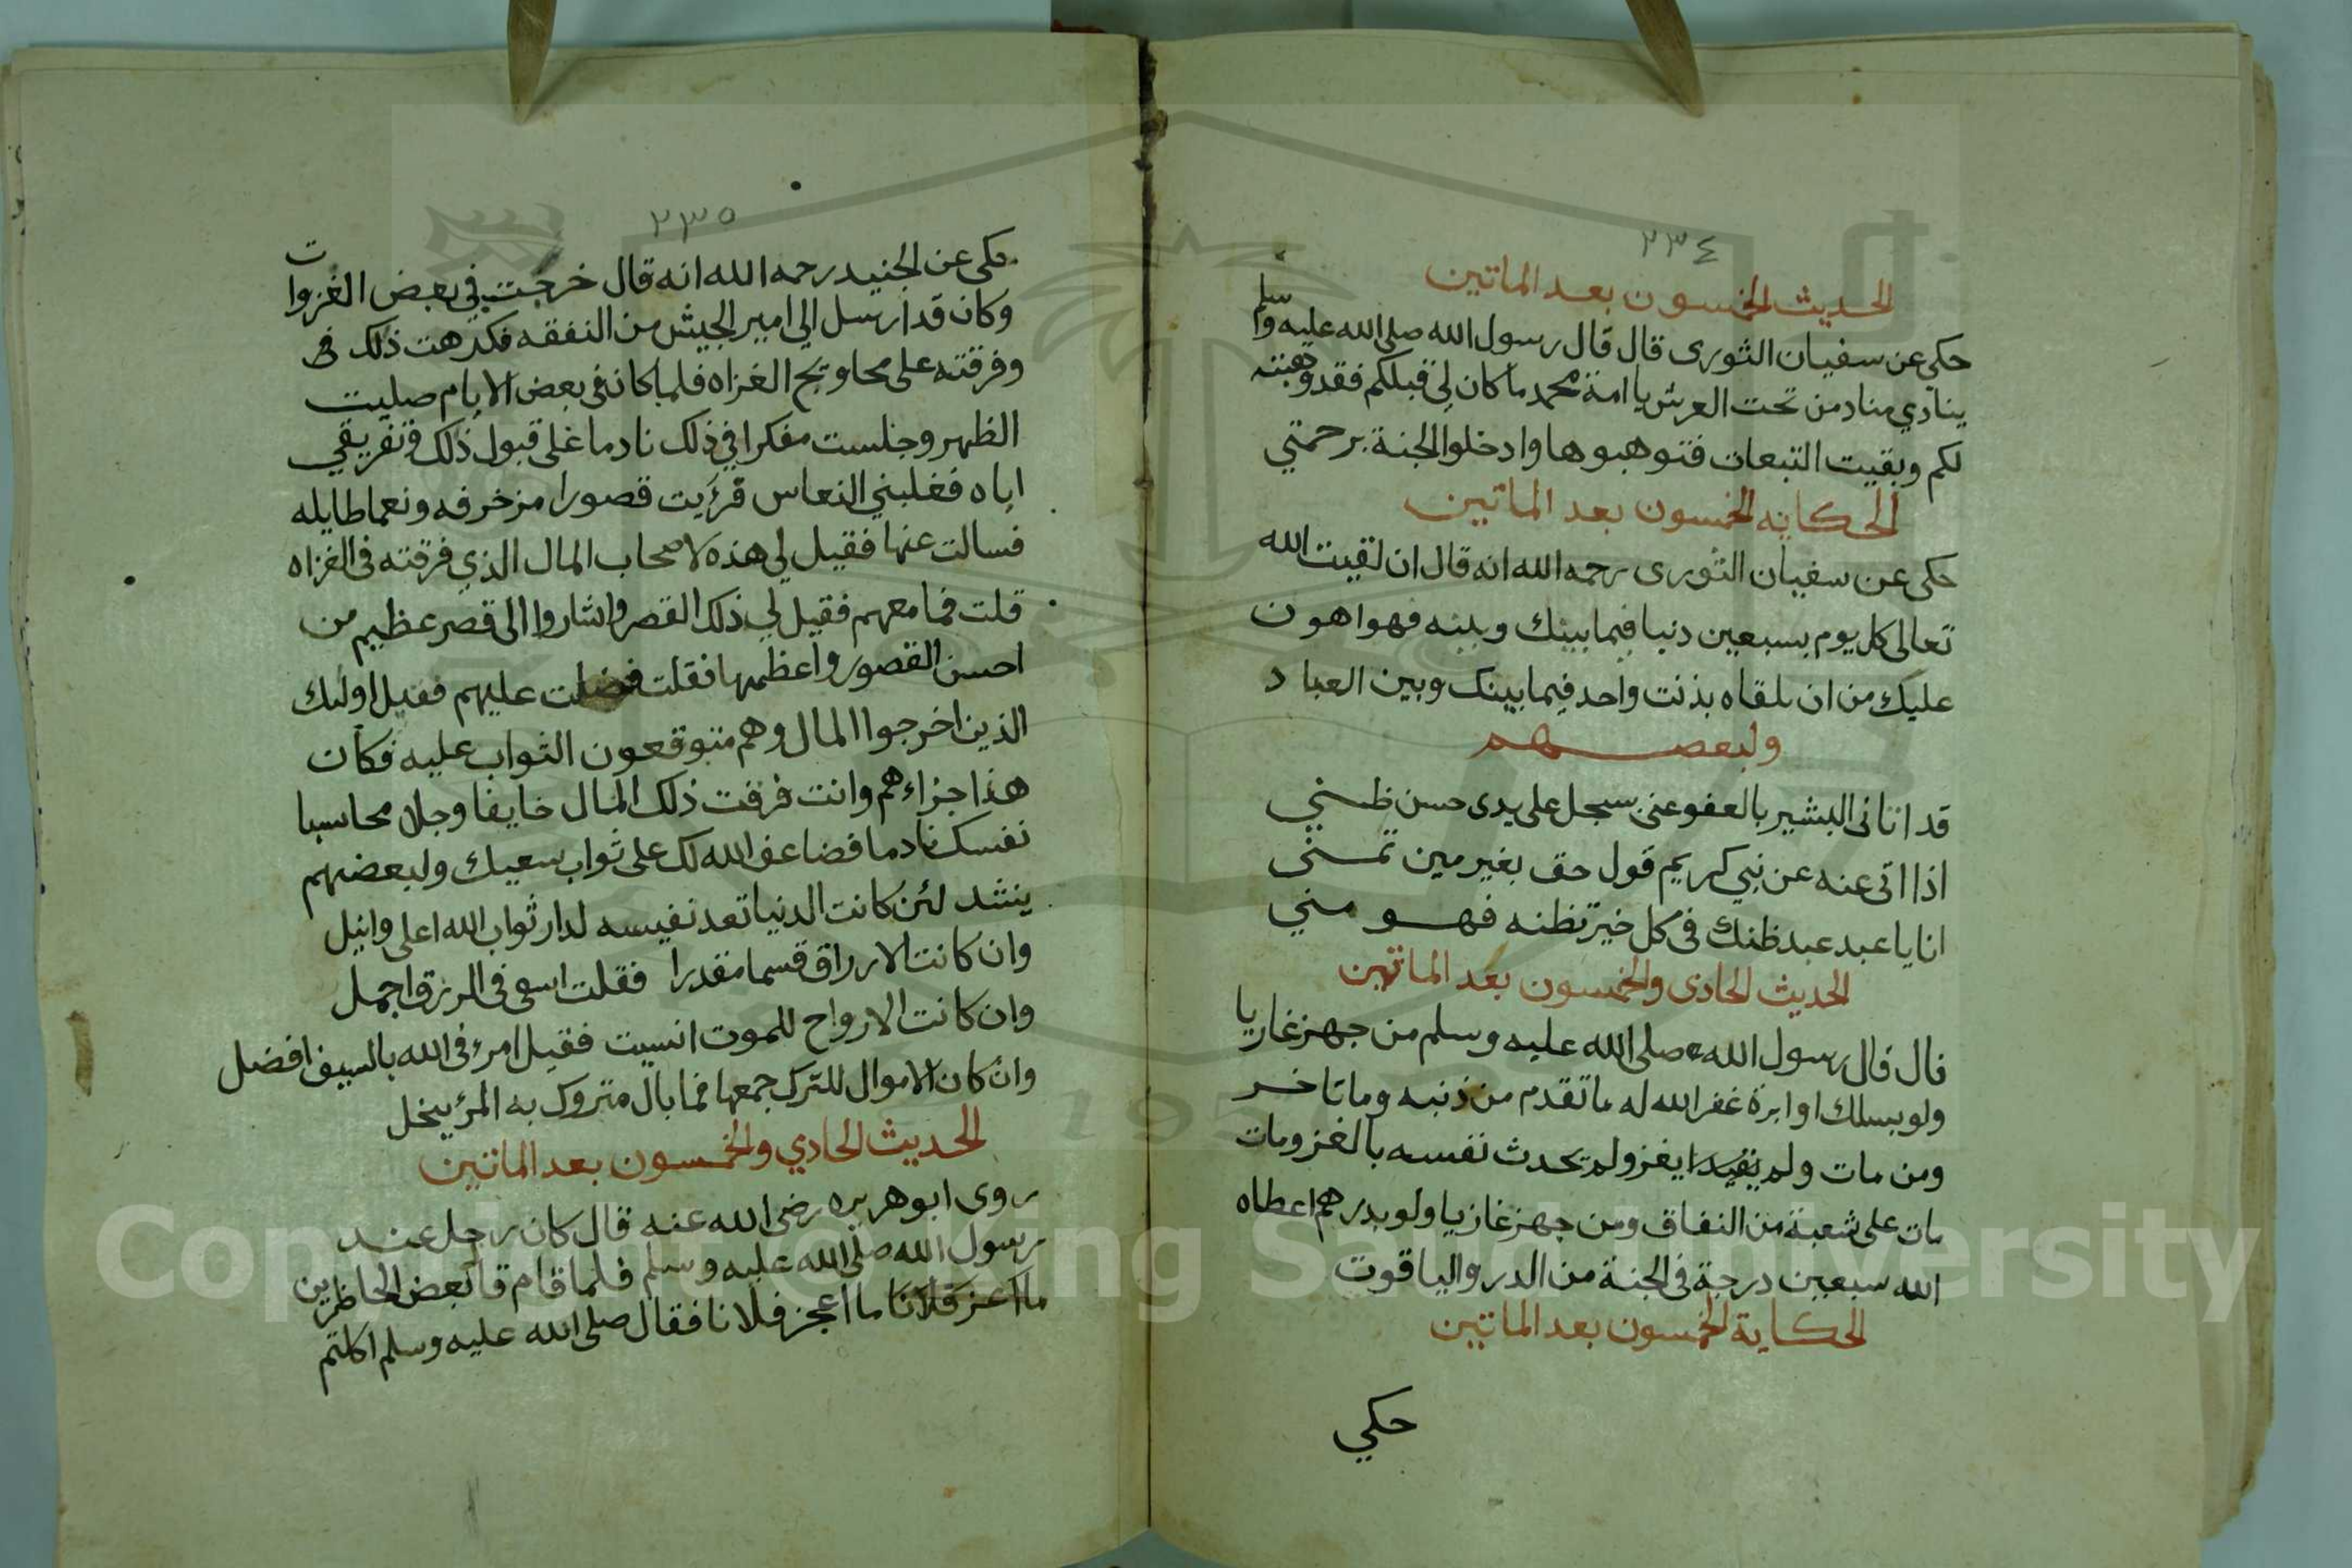 ٢٣٤
الحديث الخمسون بعد الماتين
حكى عن سفيان الثورى قال قال رسول الله صلى الله عليه وسلم
ينادي مناد من تحت العرش يا امة محمد ما كان لي قبلكم فقد وهبته
لكم وبقيت التبعات فتوهبوها وادخلوا الجنة برحمتي
الحكايه الخمسون بعد الماتين
حكى عن سفيان الثورى رحمه الله انه قال ان لقيت الله
تعالى كل يوم بسبعين دنبا فيما بينك وبينه فهو اهون
عليك من ان تلقاه بذنت واحد فيما بينك وبين العباد
ولبعضهم
قد اتانى البشير بالعفو عنى سجل على يدى حسن ظنني
اذا اتى عنه عن نبي كريم قول حق بغير مين تمنى
انا يا عبد عبد ظنك فى كل خير تظنه فهو مني
الحديث الحادى والخمسون بعد الماتين
قال قال رسول الله صلى الله عليه وسلم من جهز غازيا
ولو بسلك او ابرة غفر الله له ما تقدم من ذنبه وما تاخر
ومن مات ولم يغزو لم تحدث نفسه بالغزو مات
مات على شعبة من النفاق ومن جهز غازيا ولو بدرهم اعطاه
الله سبعين درجة فى الجنة من الدر والياقوت
الحكاية الخمسون بعد الماتين
حكي
٢٣٥
حكى عن الجنيد رحمه الله انه قال خرجت في بعض الغزوات
وكان قد ارسل الي امير الجيش من النفقه فكرهت ذلك
وفرقته على محاويج الغزاه فلما كان فى بعض الايام صليت
الظهر وجلست مفكرا في ذلك نادما على قبول ذلك وتفريقي
اياه فغلبني النعاس فرايت قصورا مزخرفه ونعما طايله
فسالت عنها فقيل لي هذه لاصحاب المال الذي فرقته فى الغزاه
قلت فما معهم فقيل لي ذلك القصر واشاروا الى قصر عظيم من
احسن القصور واعظمها فقلت فضلت عليهم فقيل اولئك
الذين اخرجوا المال وهم متوقعون الثواب عليه فكان
هذا جزاءهم وانت فرقت ذلك المال خايفا وجلا محاسبا
نفسك نادما فضاعف الله لك على ثواب سعيك ولبعضهم
ينشد لئن كانت الدنيا تعد نفيسه لدار ثواب الله اعلى وانبل
وان كانت الارزاق قسما مقدرا فقلت اسعى فى الرزق اجمل
وان كانت الارواح للموت انسيت فقيل امرء فى الله بالسيف افضل
وان كان الاموال للترك جمعها فما بال متروك به المرء يبخل
الحديث الحادي والخمسون بعد الماتين
روى ابو هريره رضى الله عنه قال كان رجل عند
رسول الله صلى الله عليه وسلم فلما قام قال بعض الحاظرين
ما اعز فلانا ما اعجز فلانا فقال صلى الله عليه وسلم اكلتم
Copyright © King Saud University
195